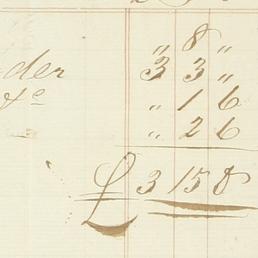 „ 8 „
der 3 3 „
&c „ 1 6
„ 2 6
£ 3 15 8